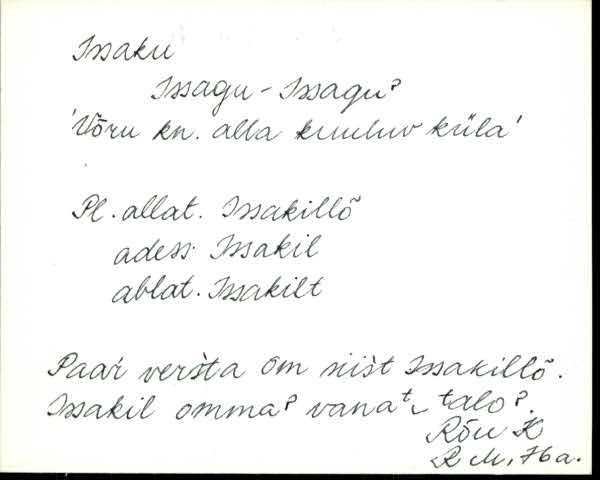 Issaku
Issagu - Issaguʔ
'Võru kn. alla kuuluv küla'
Pl. allat. Issakillõ
adess. Issakil
ablat. Issakilt
Paaŕ veršta om siišt Issakillõ.
Issakil ommaʔ vanaᵗ‿ᵗaloʔ.
Rõu K
R M, 76a.